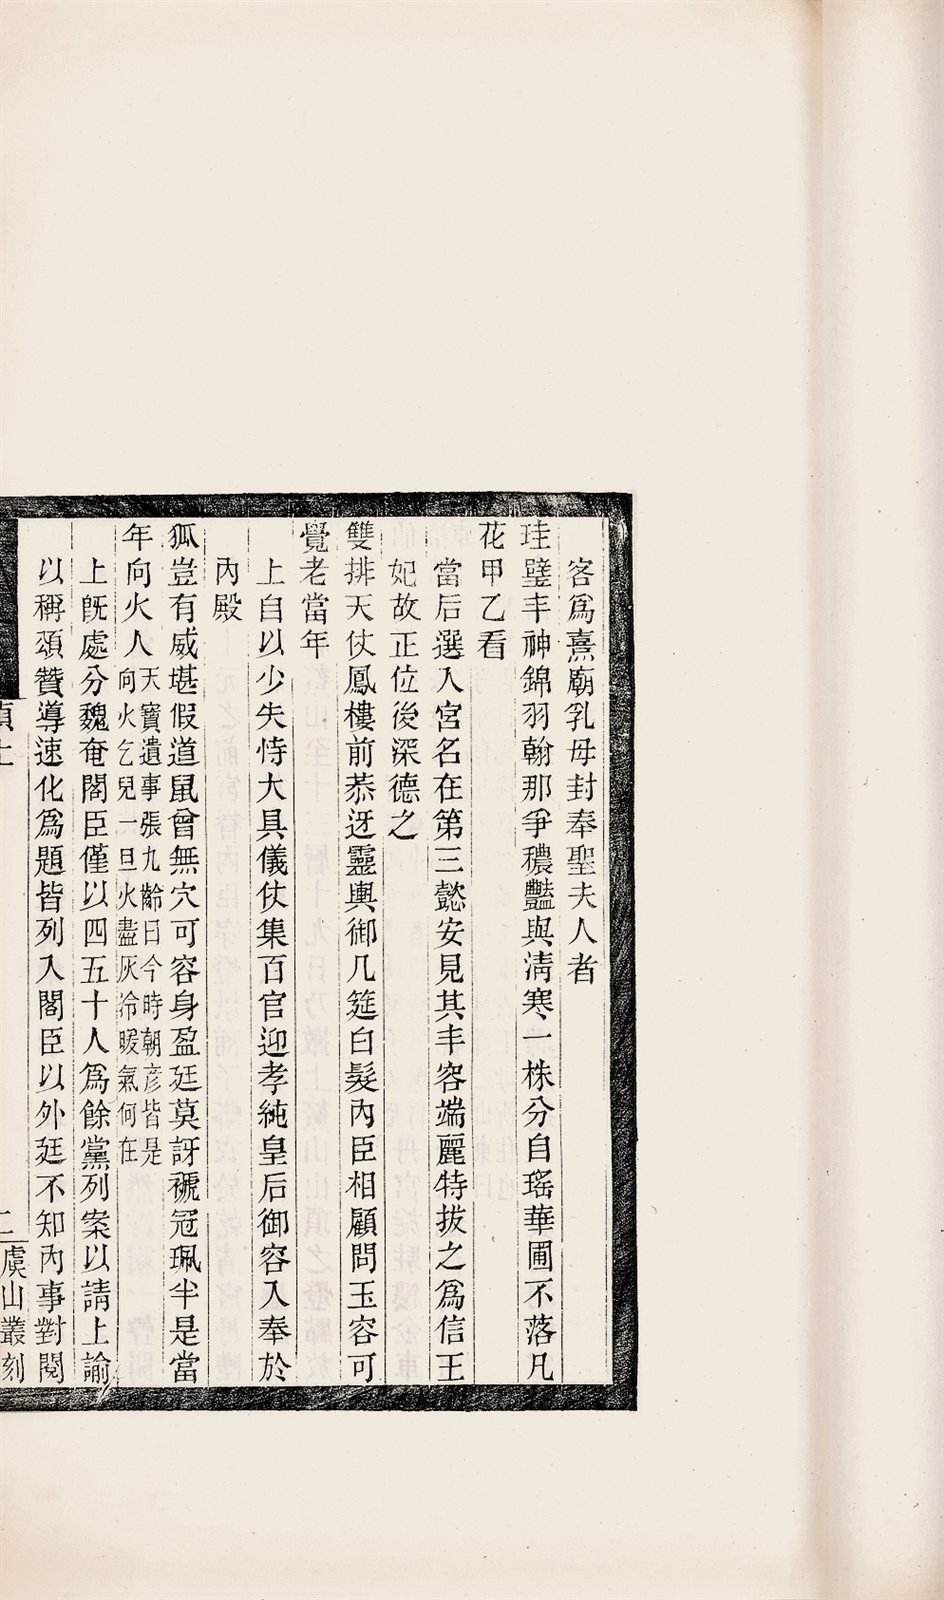 客爲熹廟乳母封奉聖夫人者
珪璧丰神錦羽翰那爭穠豔與淸寒一株分自瑤華圃不落凡
花甲乙看
當后選入宮名在第三懿安見其丰容端麗特拔之爲信王
妃故正位後深德之
雙排天仗鳳樓前恭迓靈輿御几筵白髮內臣相顧問玉容可
覺老當年
上自以少失恃大具儀仗集百官迎孝純皇后御容入奉於
內殿
狐豈有威堪假道鼠曾無穴可容身盈廷莫訝褫冠珮半是當
年向火人天寶遺事張九齡曰今時朝彦皆是
向火乞兒一旦火盡灰冷暖氣何在
上旣處分魏奄閣臣僅以四五十人爲餘黨列案以請上諭
以稱頌贊導速化爲題皆列入閣臣以外廷不知內事對閱
二
虞山叢刻